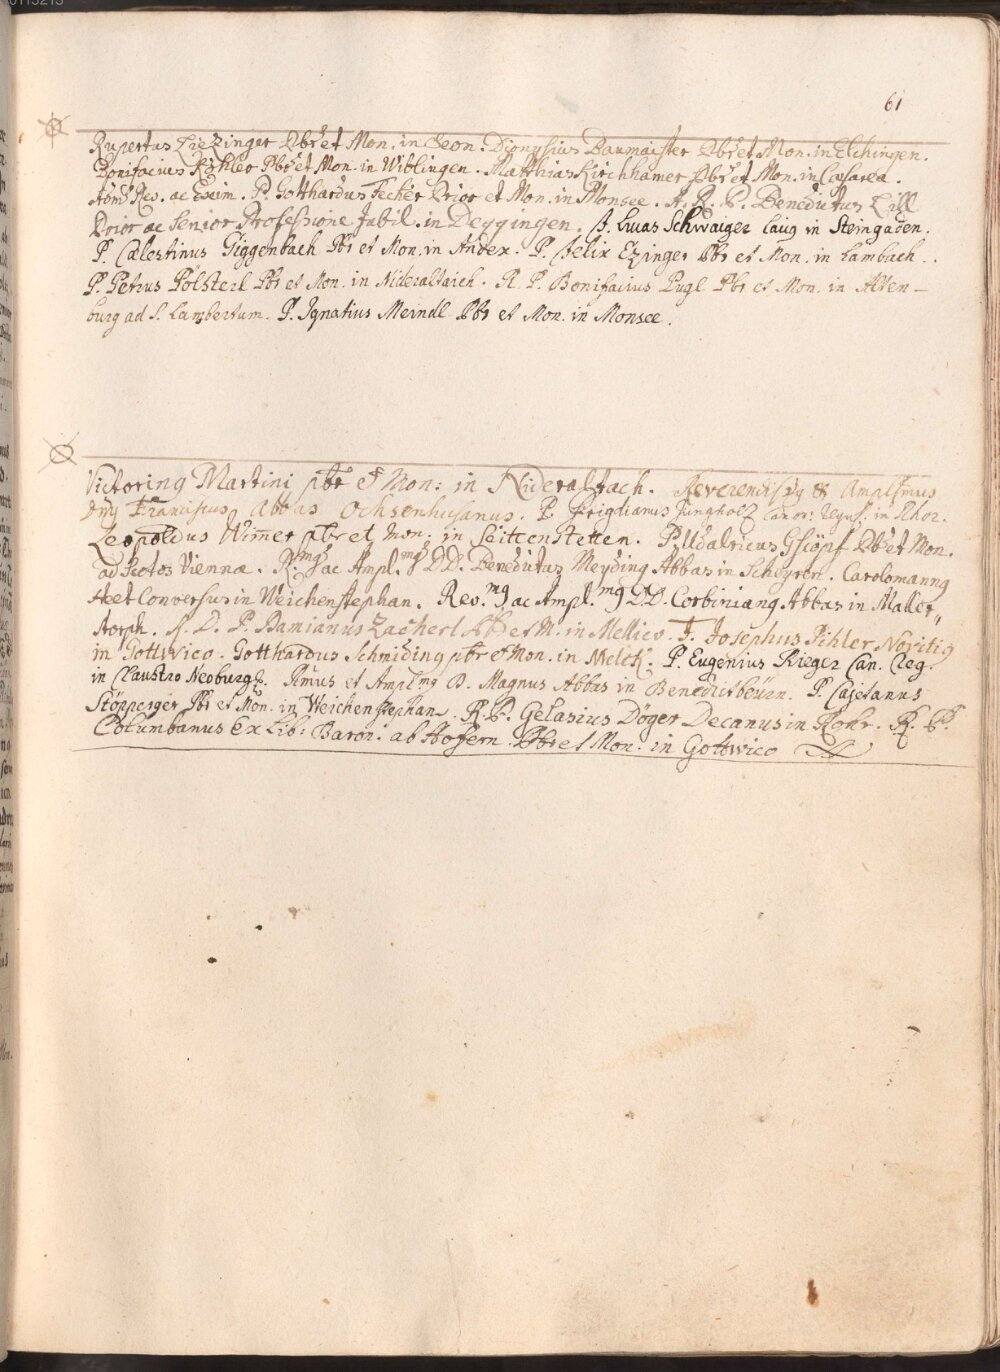 61
Rupertus Liezinger Pbr et Mon. in Seon. Dionysius Baumaister Pbr et Mon. in Elchingen.
Bonifacius Köhler Pbr et Mon. in Wiblingen. Matthias Kirchhamer Pbr et Mon. in Casarea.
Adm Res. ac Exim. P. Gotthardus Fecher Prior et Mon. in Monsee. A. R. P. Benedictus Lill
Prior ac Senior Professione Jubil. in Deggingen. F. Lucas Schwaiger Laicg in Steingaden.
P. Cælestinus Giggenbach Pbr et Mon. in Andex. P. Felix Ezinger Pbr et Mon. in Lambach.
P. Petrus Pölsterl Pbr et Mon. in Nideraltaich. R. P. Bonifacius Pugl Pbr et Mon. in Alten-
burg ad S. Lambertum. P. Ignatius Meindl Pbr et Mon. in Monsee.
Victoring Martini pbr et Mon: in Nideraltach. Reverendissg & Amplsmus
Dng Franciscus Abbas Ochsenhusanus. P. Frigdianus Jungholz Canon: in Rhor.
Leopoldus Wimer pbr et Mon: in Seittenstetten. P. Udalricus Gschöpf Pbr et Mon.
ad Scotos Viennæ. R.mg ac Ampl.mg DD. Benedictus Meyding Abbas in Scheyrn. Carolomanng
Conversus in Weichenstephan. Rev.mg ac Ampl.mg DD. Corbiniang Abbas in Maller„
storph. A. D. P. Damianus Zacherl Pb et M. in Mellico. F. Josephus Pihler Novitig
in Gottwico. Gotthardus Schmiding pbr et Mon. in Melck. P. Eugenius Rieger Can. Reg.
in Claustro Neoburg. Rmus et Amplmg D. Magnus Abbas in Benedictbeürn. P. Cajetanus
Stöpperger Pbr et Mon. in Weichenstephan. R. P. Gelasius Döger Decanus in Rohr. R. P.
Columbanus ex Lib: Baron: ab Hofern Pbr et Mon. in Gottwico